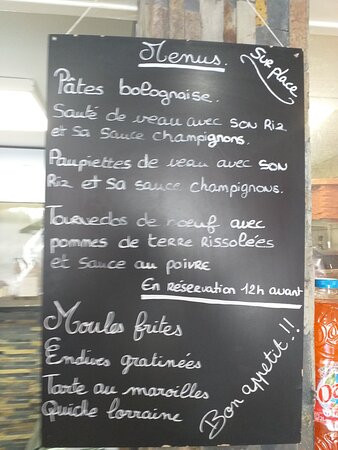 Menus.
Sur place
Pâtes bolognaise.
Sauté de veau avec son Riz
et sa sauce champignons.
Paupiettes de veau avec son
Riz et sa sauce champignons.
Tournedos de boeuf avec
pommes de terre Rissolées
et sauce au poivre
En réservation 12h avant
Moules frites
Endives gratinées
Tarte au maroilles
Quiche lorraine
Bon appetit!!